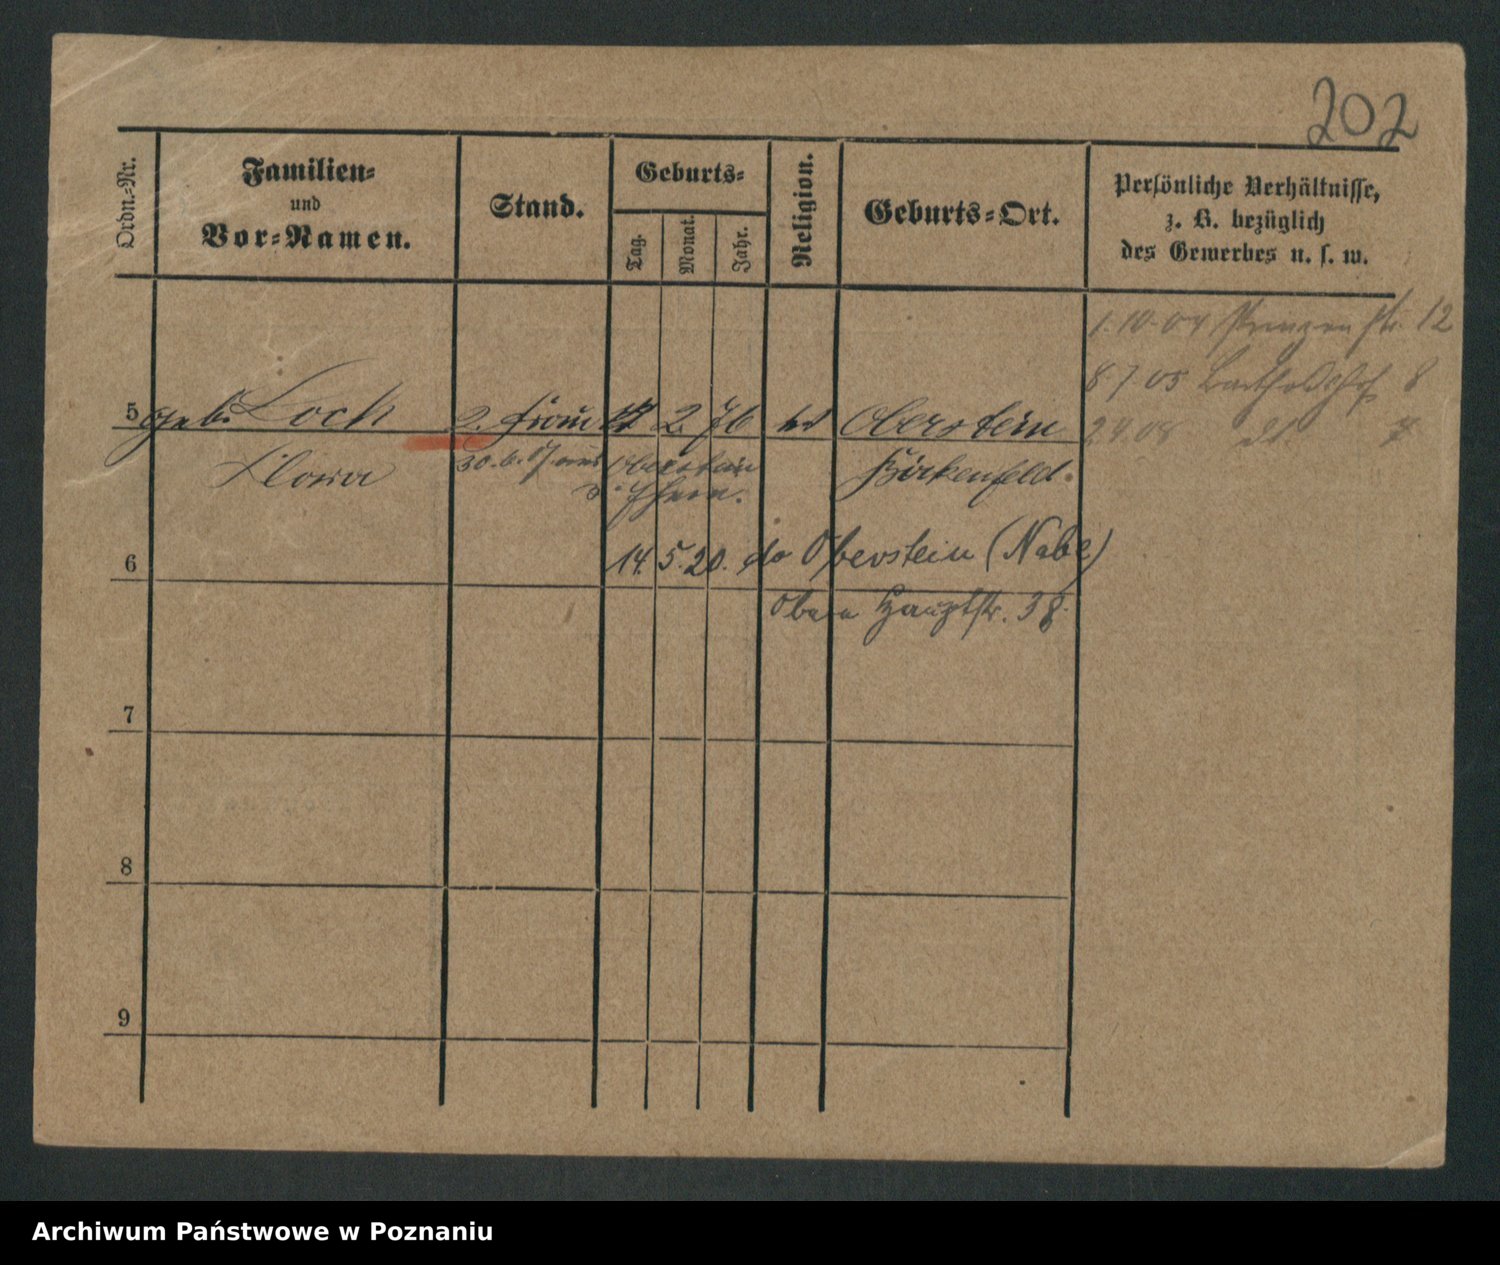 202
Ordn.-Nr.
Familien-
und
Vor-Namen.
Stand.
Geburts-
Tag.
Monat.
Jahr.
Religion.
Geburts-Ort.
Persönliche Verhältnisse,
z. B. bezüglich
des Gewerbes u. s. w.
1.10.04 str. 12
8.7.05 8
5 geb. Loch 2. Frau 2. 76 Oberstein
24.08
Flora 30.6. Oberstein Birkenfeld.
6 14.5.20. do Oberstein (Nahe)
Obere Hauptstr. 38.
7
8
9
Archiwum Państwowe w Poznaniu